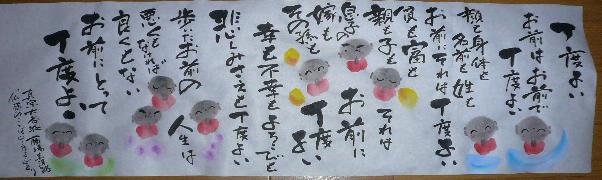 丁度よい
お前はお前で
丁度よい
顔も身体も
名前も姓も
お前にそれは丁度よい
貧も富も
親も子も
息子の
嫁も
その孫も
それは
お前に
丁度よい
幸も不幸もよろこびも
悲しみさえも丁度よい
歩いたお前の人生は
悪くもなければ
良くもない
お前にとって
丁度よい